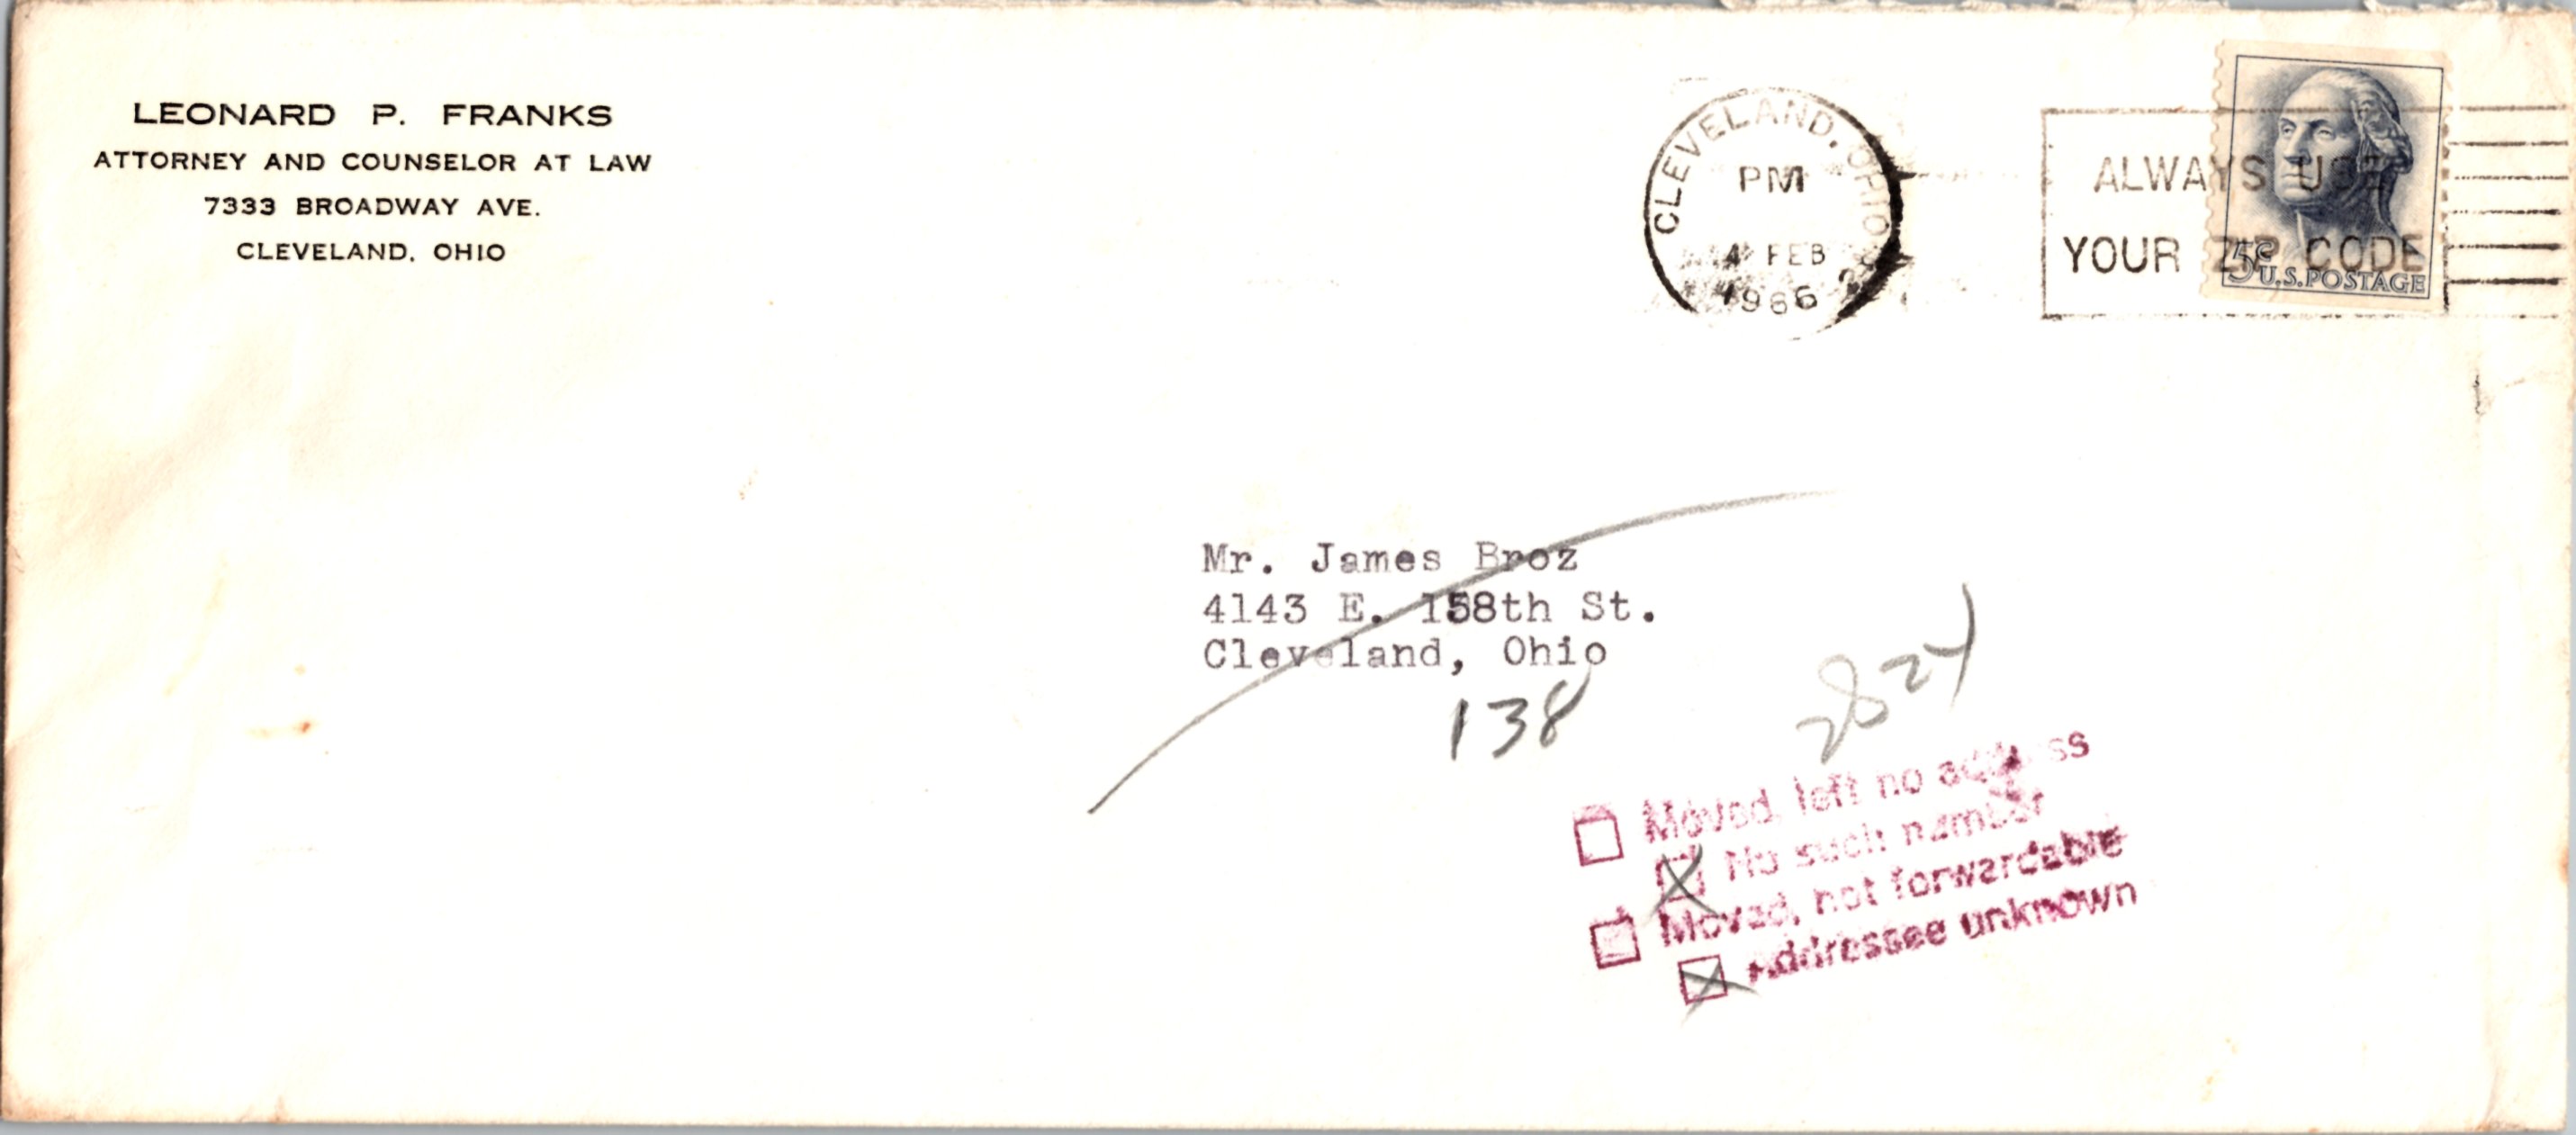 LEONARD P. FRANKS
ATTORNEY AND COUNSELOR AT LAW
7333 BROADWAY AVE.
CLEVELAND, OHIO
CLEVELAND, OHIO
PM
4 FEB
1966
ALWAYS USE
YOUR ZIP CODE
5¢ U.S. POSTAGE
Mr. James Broz
4143 E. 158th St.
Cleveland, Ohio
138
2824
Moved, left no address
No such number
Moved, not forwardable
Addressee unknown